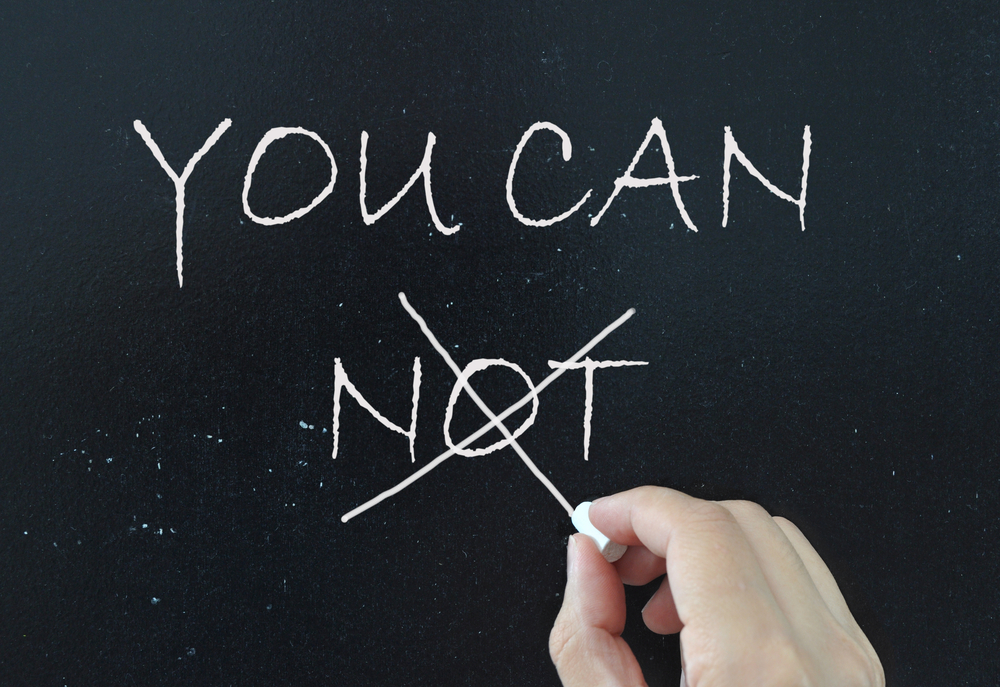 YOU CAN
NOT